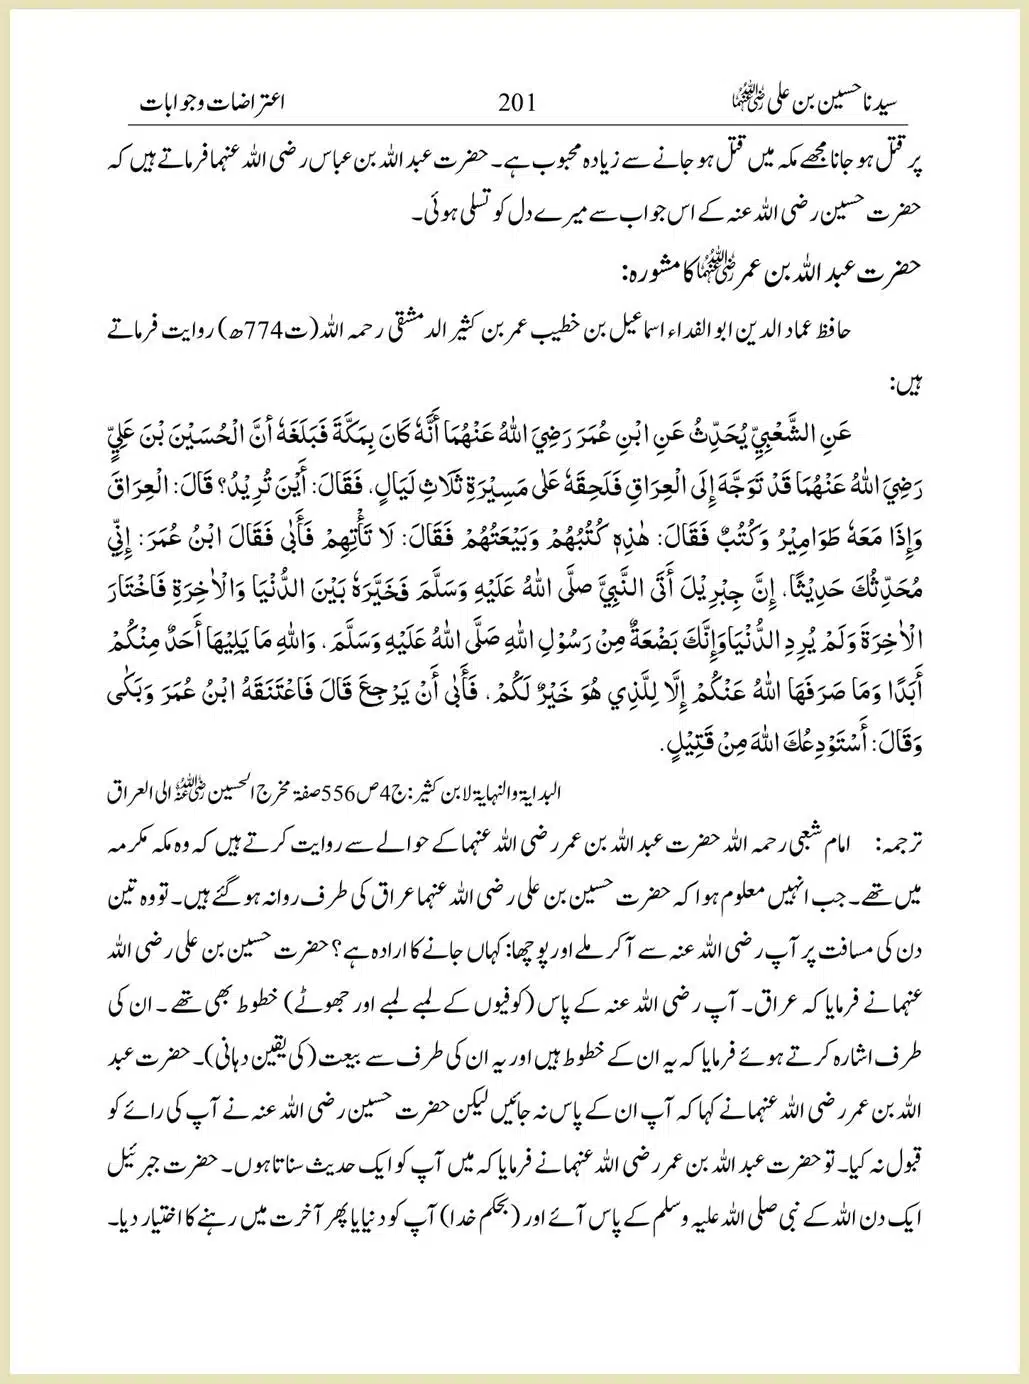 سیدنا حسین بن علی رضی اللہ عنہما 201 اعتراضات و جوابات
پر قتل ہو جانا مجھے مکہ میں قتل ہو جانے سے زیادہ محبوب ہے۔ حضرت عبد اللہ بن عباس رضی اللہ عنہما فرماتے ہیں کہ
حضرت حسین رضی اللہ عنہ کے اس جواب سے میرے دل کو تسلی ہوئی۔
حضرت عبد اللہ بن عمر رضی اللہ عنہما کا مشورہ:
حافظ عماد الدین ابو الفداء اسماعیل بن خطیب عمر بن کثیر الدمشقی رحمہ اللہ (ت774ھ) روایت فرماتے
ہیں:
عَنِ الشَّعْبِيِّ يُحَدِّثُ عَنِ ابْنِ عُمَرَ رَضِيَ اللهُ عَنْهُمَا أَنَّهٗ كَانَ بِمَكَّةَ فَبَلَغَهٗ أَنَّ الْحُسَيْنَ بْنَ عَلِيٍّ
رَضِيَ اللهُ عَنْهُمَا قَدْ تَوَجَّهَ إِلَى الْعِرَاقِ فَلَحِقَهٗ عَلٰى مَسِيْرَةِ ثَلَاثِ لَيَالٍ، فَقَالَ: أَيْنَ تُرِيْدُ؟ قَالَ: الْعِرَاقَ
وَإِذَا مَعَهٗ طَوَامِيْرُ وَكُتُبٌ فَقَالَ: هٰذِهٖ كُتُبُهُمْ وَبَيْعَتُهُمْ فَقَالَ: لَا تَأْتِهِمْ فَأَبٰى فَقَالَ ابْنُ عُمَرَ: إِنِّي
مُحَدِّثُكَ حَدِيْثًا، إِنَّ جِبْرِيْلَ أَتَى النَّبِيَّ صلَّى اللهُ عَلَيْهِ وَسَلَّمَ فَخَيَّرَهٗ بَيْنَ الدُّنْيَا وَالْاٰخِرَةِ فَاخْتَارَ
الْاٰخِرَةَ وَلَمْ يُرِدِ الدُّنْيَا وَإِنَّكَ بَضْعَةٌ مِنْ رَسُوْلِ اللهِ صَلَّى اللهُ عَلَيْهِ وَسَلَّمَ، وَاللهِ مَا يَلِيْهَا أَحَدٌ مِنْكُمْ
أَبَدًا وَمَا صَرَفَهَا اللهُ عَنْكُمْ إِلَّا لِلَّذِي هُوَ خَيْرٌ لَكُمْ، فَأَبٰى أَنْ يَرْجِعَ قَالَ فَاعْتَنَقَهُ ابْنُ عُمَرَ وَبَكٰى
وَقَالَ: أَسْتَوْدِعُكَ اللهَ مِنْ قَتِيْلٍ.
البدایۃ والنہایۃ لابن کثیر: ج4 ص556 صفۃ مخرج الحسین رضی اللہ عنہ الی العراق
ترجمہ: امام شعبی رحمہ اللہ حضرت عبد اللہ بن عمر رضی اللہ عنہما کے حوالے سے روایت کرتے ہیں کہ وہ مکہ مکرمہ
میں تھے۔ جب انہیں معلوم ہوا کہ حضرت حسین بن علی رضی اللہ عنہما عراق کی طرف روانہ ہو گئے ہیں۔ تو وہ تین
دن کی مسافت پر آپ رضی اللہ عنہ سے آ کر ملے اور پوچھا: کہاں جانے کا ارادہ ہے؟ حضرت حسین بن علی رضی اللہ
عنہما نے فرمایا کہ عراق۔ آپ رضی اللہ عنہ کے پاس (کوفیوں کے لمبے لمبے اور جھوٹے) خطوط بھی تھے۔ ان کی
طرف اشارہ کرتے ہوئے فرمایا کہ یہ ان کے خطوط ہیں اور یہ ان کی طرف سے بیعت (کی یقین دہانی)۔ حضرت عبد
اللہ بن عمر رضی اللہ عنہما نے کہا کہ آپ ان کے پاس نہ جائیں لیکن حضرت حسین رضی اللہ عنہ نے آپ کی رائے کو
قبول نہ کیا۔ تو حضرت عبد اللہ بن عمر رضی اللہ عنہما نے فرمایا کہ میں آپ کو ایک حدیث سناتا ہوں۔ حضرت جبرئیل
ایک دن اللہ کے نبی صلی اللہ علیہ وسلم کے پاس آئے اور (بحکم خدا) آپ کو دنیا یا پھر آخرت میں رہنے کا اختیار دیا۔